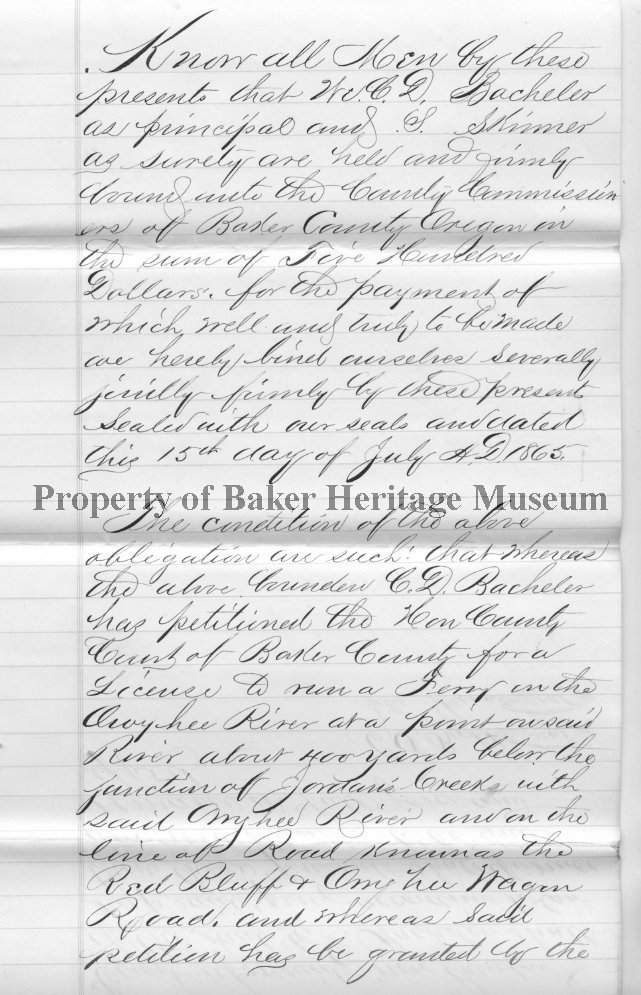 Know all Men by these
presents that We. C. D. Bacheler
as principal and S. Skinner
as surety are held and firmly
bound unto the County Commission
ers of Baker County Oregon in
the sum of Five Hundred
Dollars. for the payment of
which well and truly to be made
we hereby bind ourselves severally
jointly firmly by these presents
Sealed with our seals and dated
this 15th day of July A.D. 1865.
Property of Baker Heritage Museum
The condition of the above
obligation are such: that whereas
the above bounden C. D. Bacheler
has petitioned the Hon County
Court of Baker County for a
License to run a Ferry on the
Owyhee River at a point on said
River about 400 yards below the
junction of Jordan's Creeks with
said Owyhee River and on the
line of Road known as the
Red Bluff & Owyhee Wagon
Road. and whereas said
petition has be granted by the